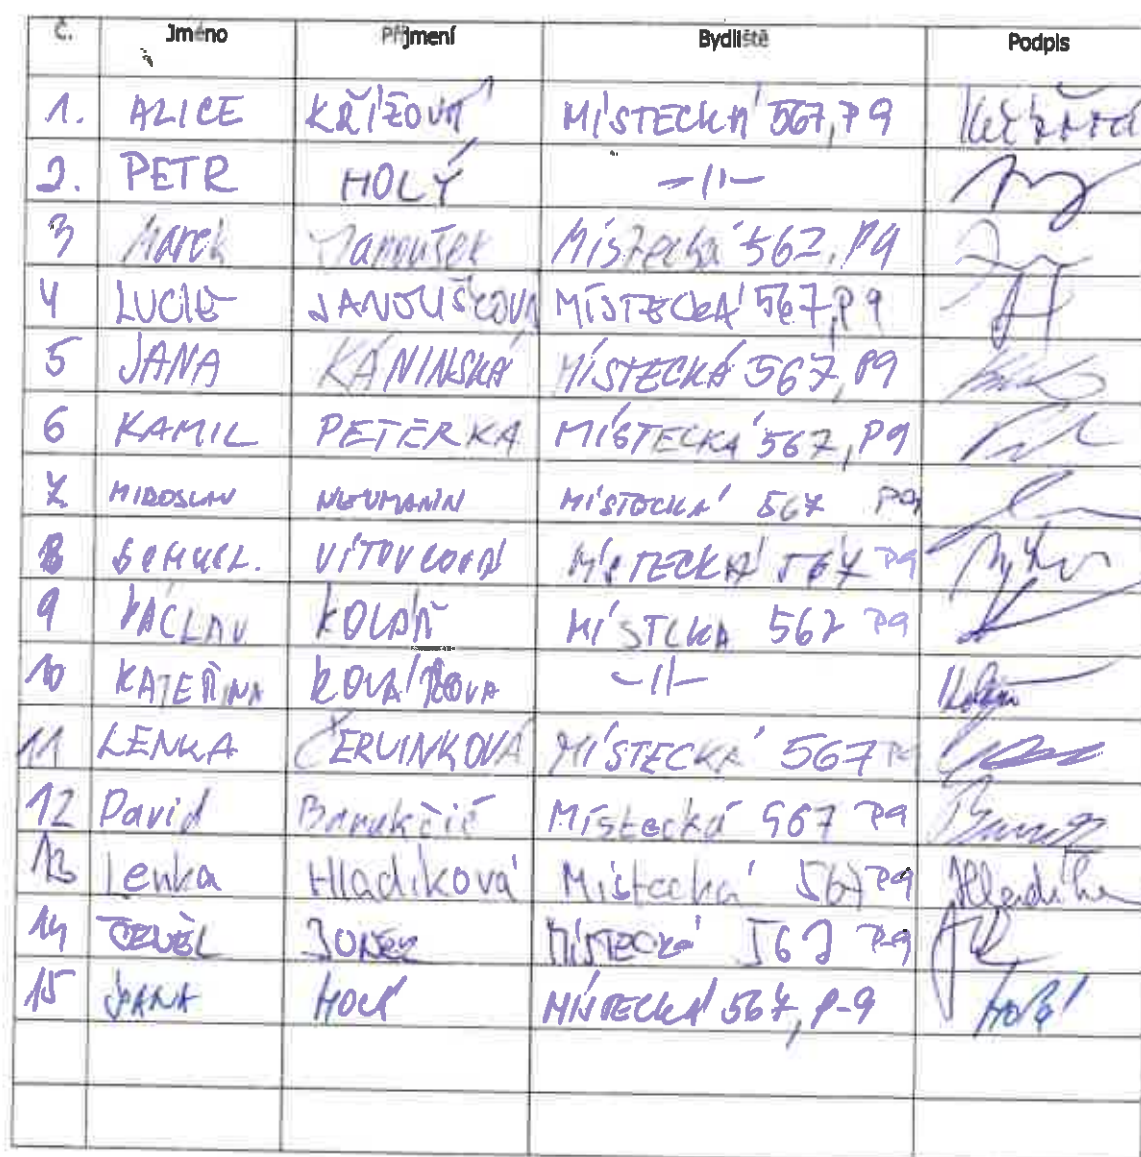 Č. Jméno Příjmení Bydliště Podpis
1. ALICE KŘÍŽOVÁ MÍSTECKÁ 567, P9
2. PETR HOLÝ -11-
3 Marek Janoušek Místecká 567, P9
4 LUCIE JANOUŠKOVÁ MÍSTECKÁ 567, P9
5 JANA KANINSKÁ MÍSTECKÁ 567, P9
6 KAMIL PETERKA MÍSTECKÁ 567, P9
7 MIROSLAV NEUMANN MÍSTECKÁ 567 P9
8 MÍSTECKÁ 567 P9
9 VÁCLAV KOLÁŘ MÍSTCKA 567 P9
10 KATEŘINA -11-
11 LENKA ČERVINKOVÁ MÍSTECKÁ 567 P9
12 David Místecká 567 P9
13 Lenka Hladíková Místecká 567 P9
14 MÍSTECKÁ 567 P-9
15 JANA HOLÁ MÍSTECKÁ 567, P-9